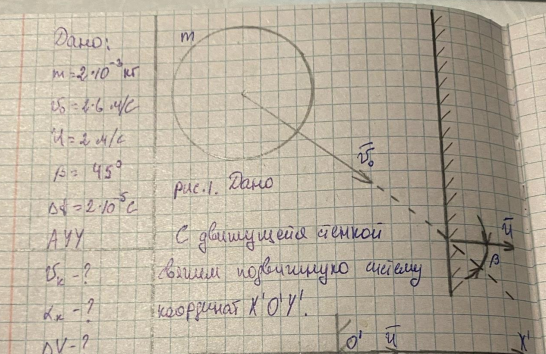 Дано:
m = 2·10⁻³ кг
v₀ = 2.6 м/с
U = 2 м/с
β = 45°
Δt = 2·10⁻⁵ с
АУУ
v̄ₖ - ?
αₖ - ?
ΔV - ?
m
v̄₀
рис.1. Дано
Ū
β
С движущейся стенкой
свяжем подвижную систему
координат X'O'Y'.
O'
Ū
X'